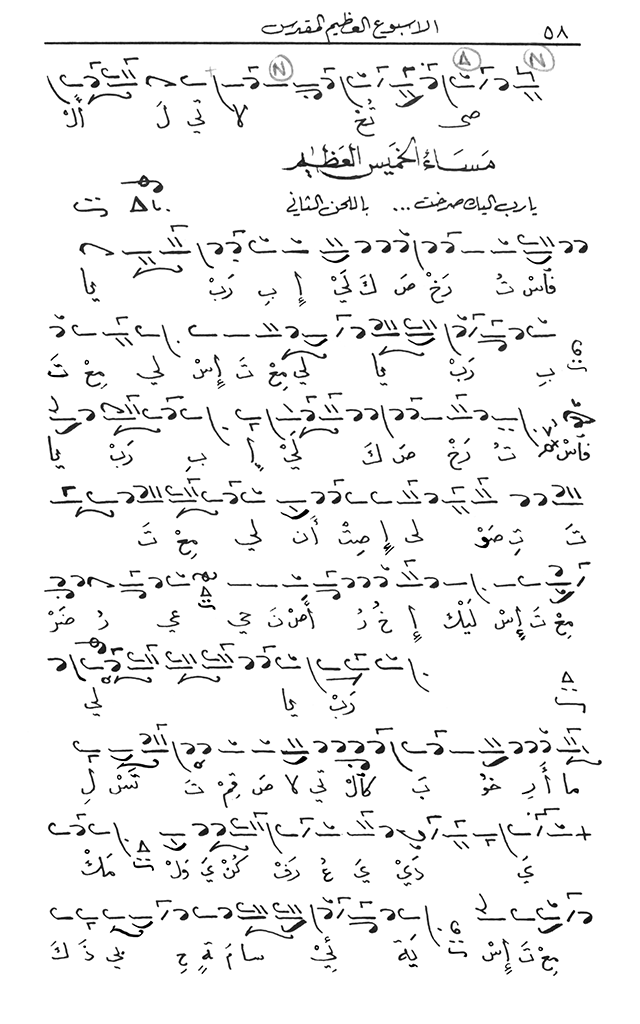 ٥٨ الاسبوع العظيم المقدس
N Δ N
صى تُخْ لا تي لَ أَلْ
مَسَاءُ الخميس العَظيم
يا رب اليك صرخت ... باللحن الثاني
فَاسْ تُ رَخْ صَ كَ لَيْ إِ بِ رَبْ يا
بِ رَبْ يا لي مِعْ تَ إِسْ لي مِعْ تَ
فَاسْ تُ رَخْ صَ كَ لَيْ إِ بِ رَبْ يا
تَ تِ صَوْ لى إِ صِتْ أَنْ لي مِعْ تَ
مِعْ تَ إِسْ لَيْكَ إِ خُ رُ أَصْ نَ حي عي رُ ضَرْ
رَبْ يا لي
ما أَرِ خُوْ بَ كَالْ تي لا صَ قِمْ تَ تَسْ لِ
يَ دَيْ يَ عُ رَفْ كُنْ يَ وَلْ مَكْ
مِعْ تَ إِسْ يَةَ ئِيْ سا مَ ةٍ حِ بي ذَ كَ